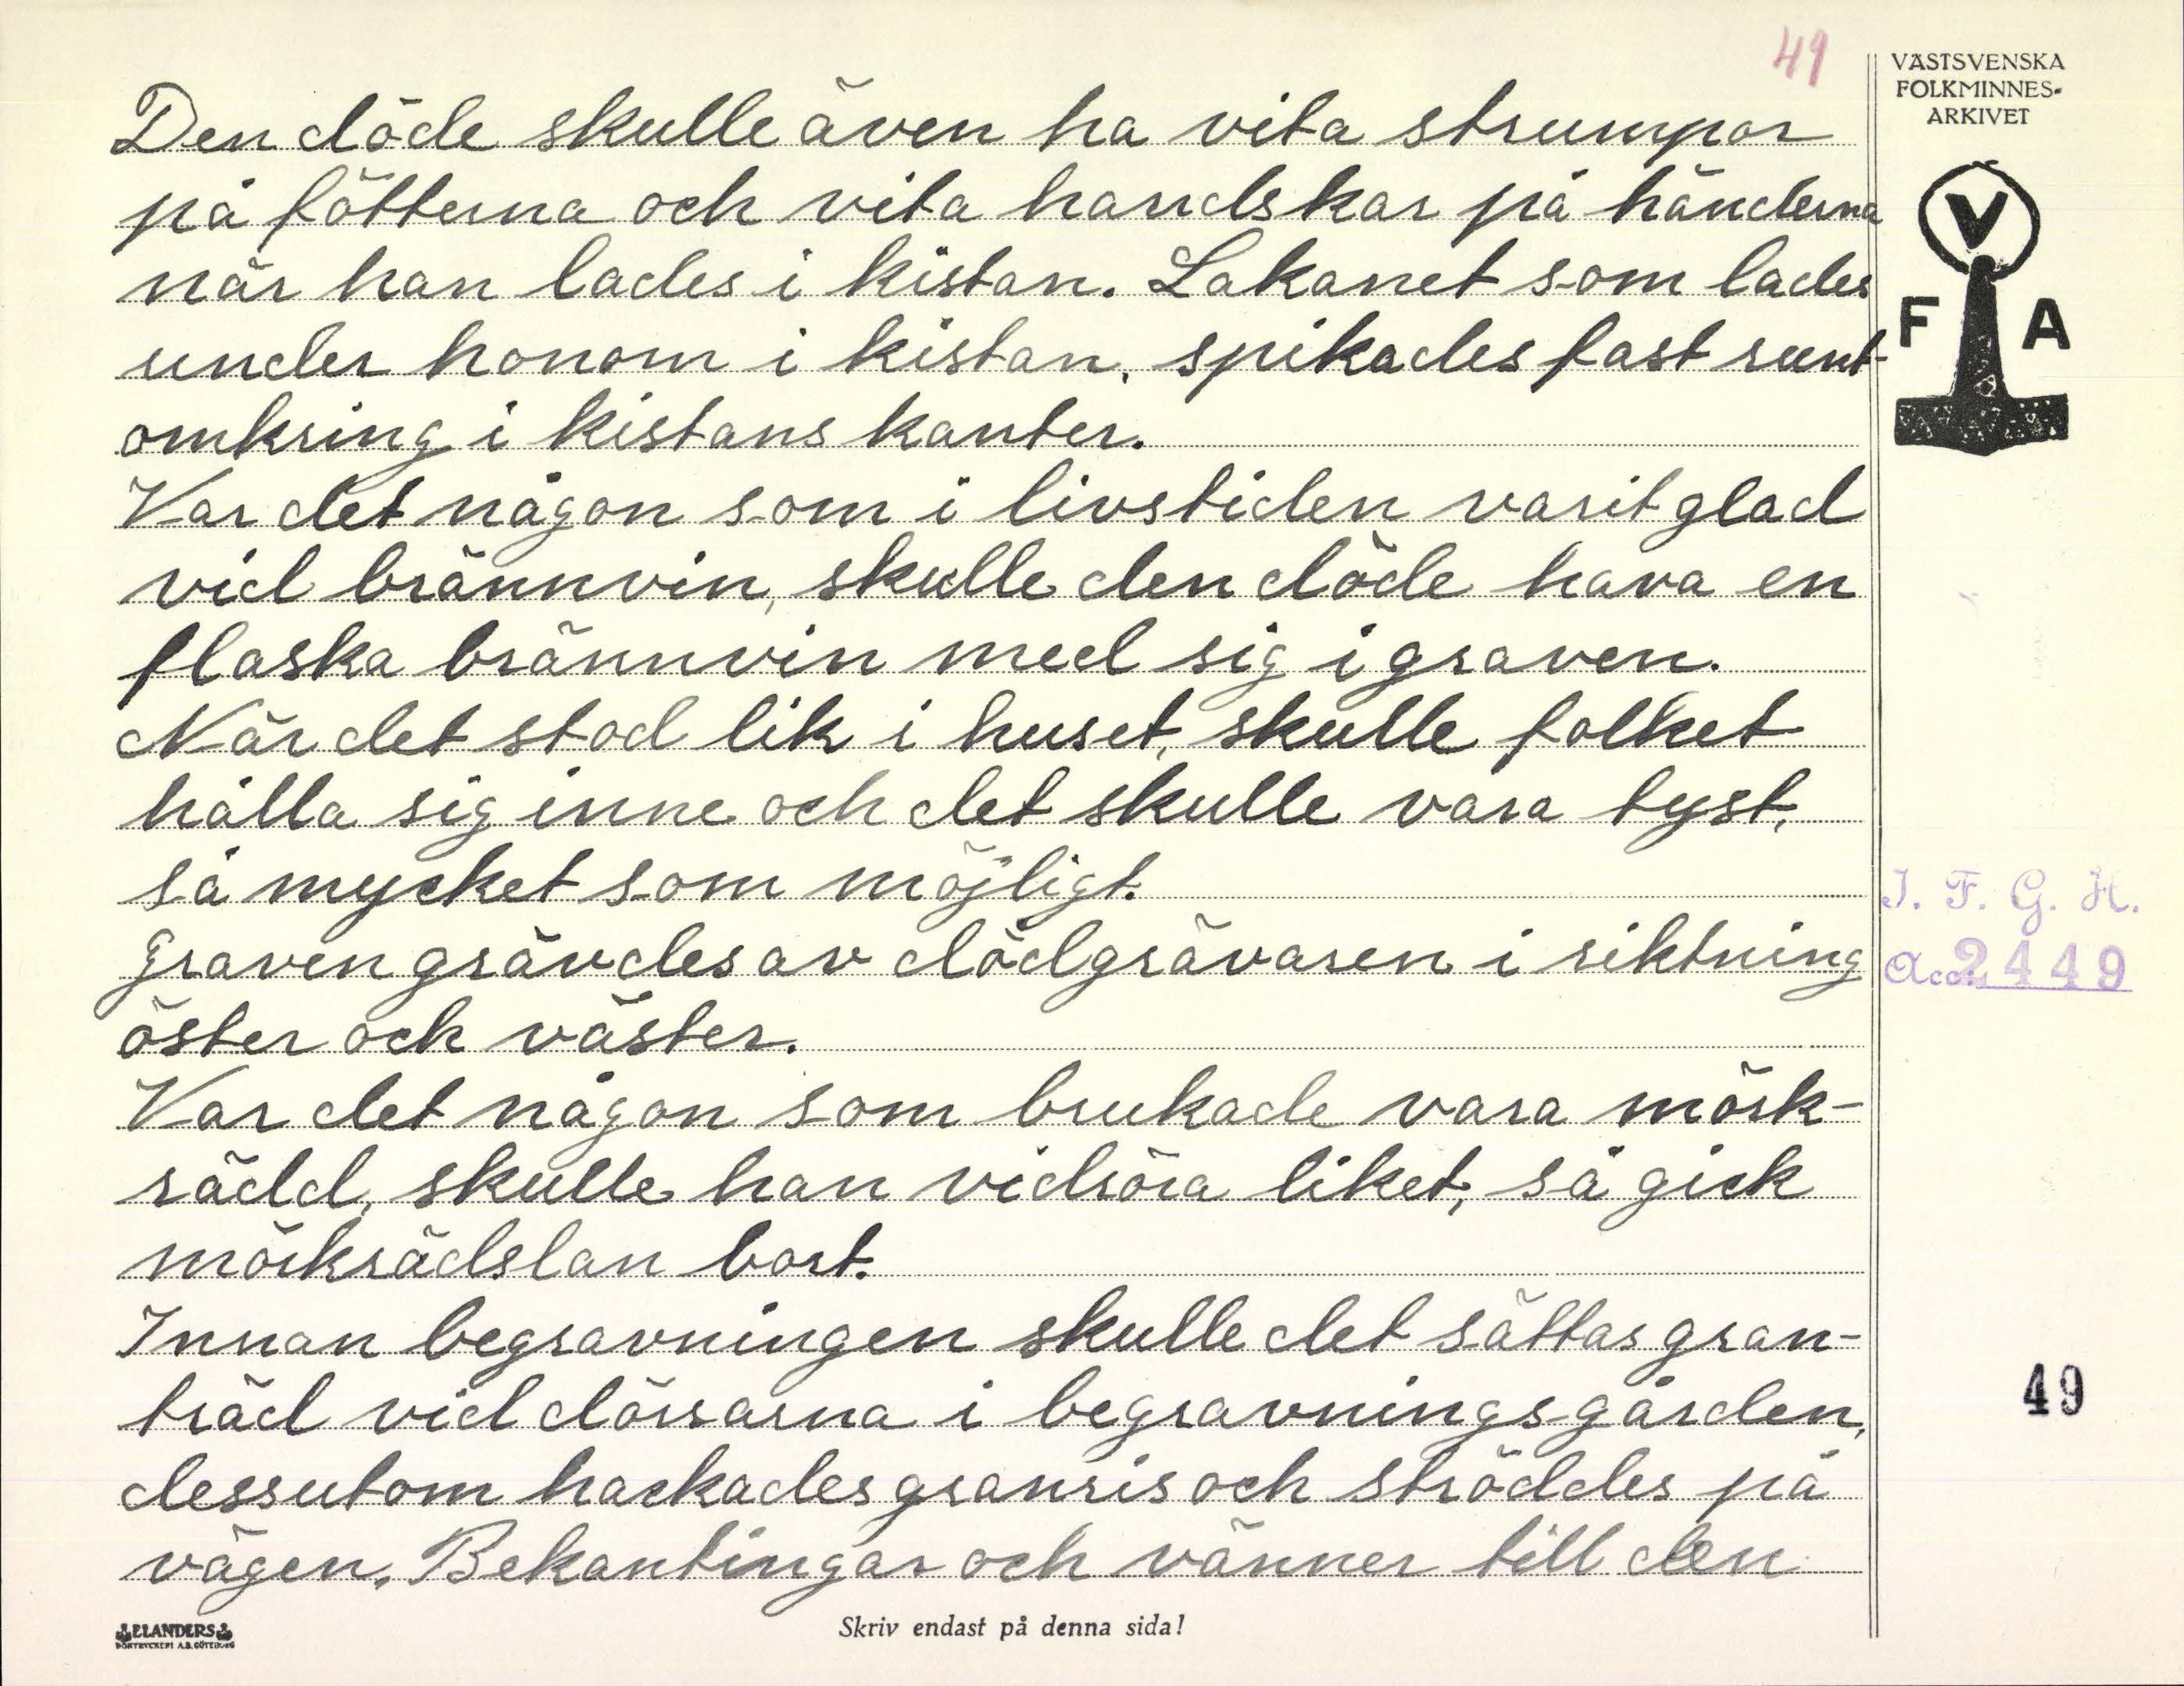 49
VÄSTSVENSKA
FOLKMINNES-
ARKIVET
V
F A
Den döde skulle även ha vita strumpor
på fötterna och vita handskar på händerna
när han lades i kistan. Lakanet som lades
under honom i kistan, spikades fast runt-
omkring i kistans kanter.
Var det någon som i livstiden varit glad
vid brännvin, skulle den döde hava en
flaska brännvin med sig i graven.
När det stod lik i huset, skulle folket
hålla sig inne och det skulle vara tyst,
så mycket som möjligt.
Graven grävdes av dödgrävaren i riktning
öster och väster.
Var det någon som brukade vara mörk-
rädd, skulle han vidröra liket, så gick
mörkrädslan bort.
Innan begravningen skulle det sättas gran-
träd vid dörrarna i begravningsgården,
dessutom hackades granris och ströddes på
vägen. Bekantingar och vänner till den
I. F. G. H.
Acc. 2449
49
ELANDERS
BOKTRYCKERI A.B. GÖTEBORG
Skriv endast på denna sida!